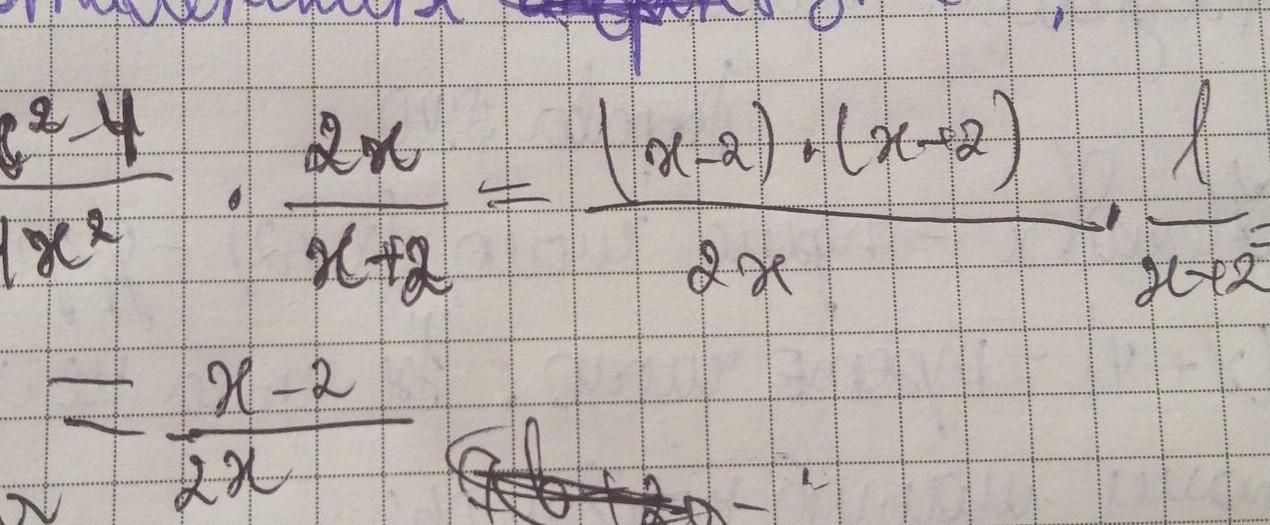 x² - 4 / 4x² · 2x / x+2 = (x-2)·(x+2) / 2x · 1 / x+2 =
= x-2 / 2x